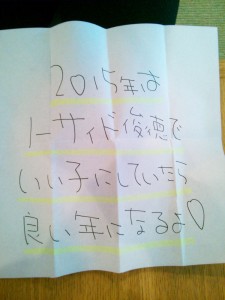 2015年は
ノーサイド俊徳で
いい子にしていたら
良い年になるよ♡